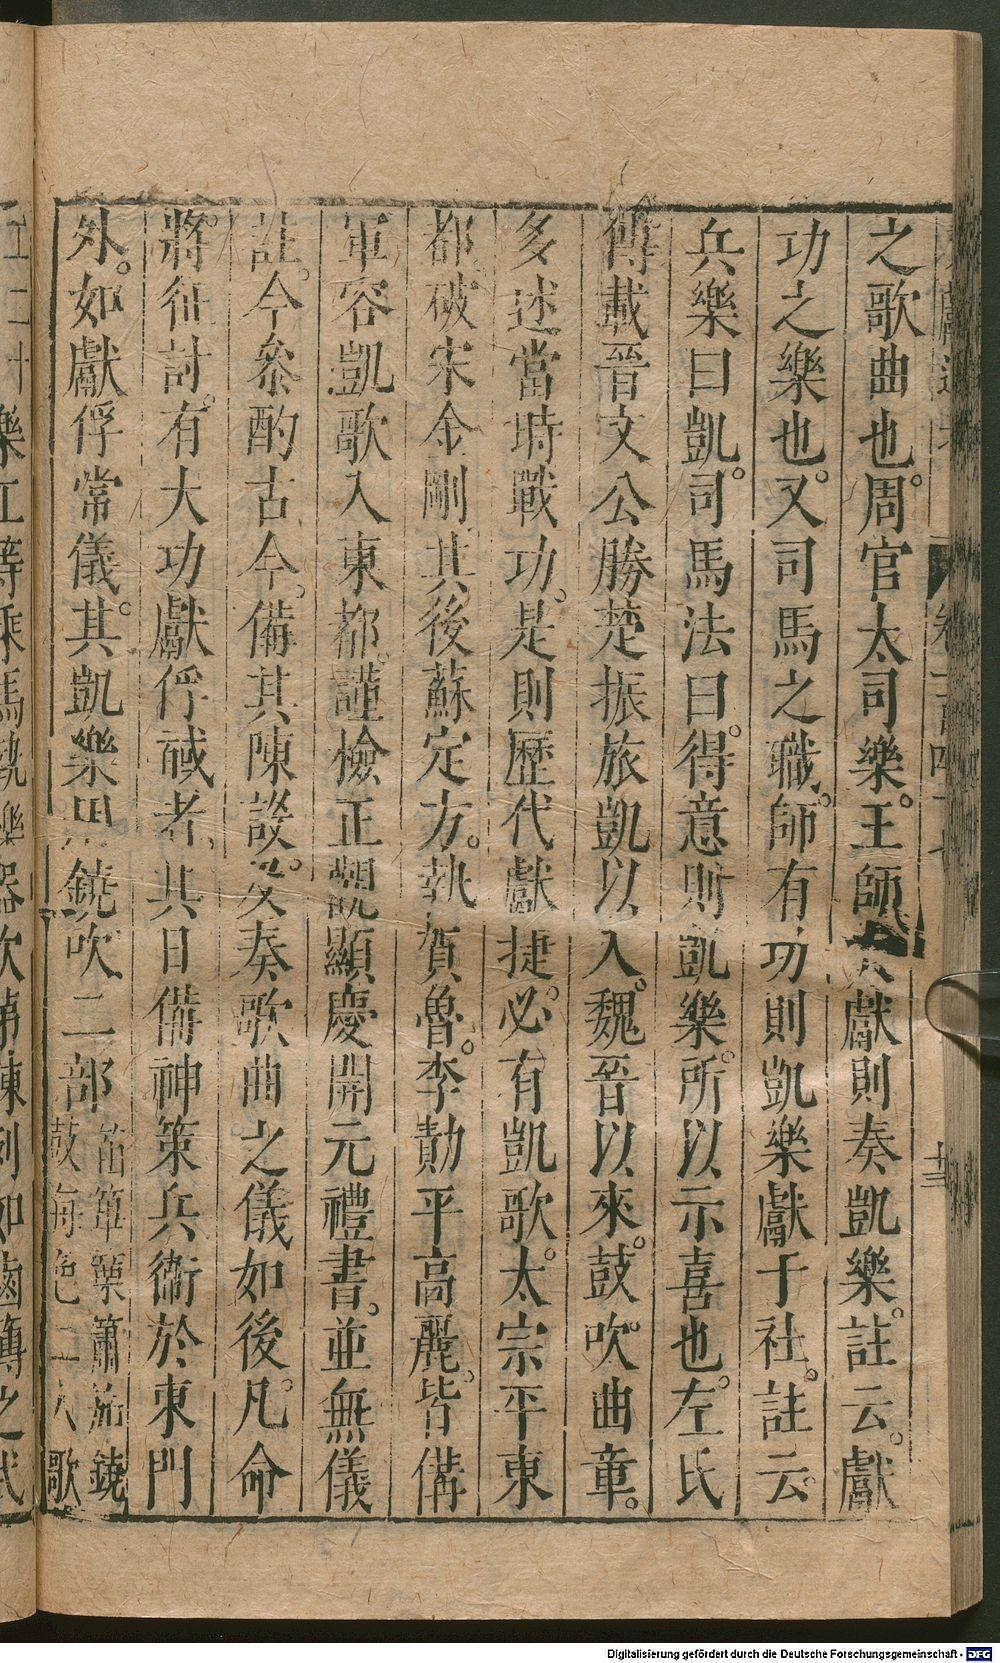 之歌曲也。周官太司樂。王師大獻則奏凱樂。註云。獻
功之樂也。又司馬之職。師有功則凱樂獻于社。註云。
兵樂曰凱。司馬法曰。得意則凱樂。所以示喜也。左氏
傳載晉文公勝楚振旅凱以入。魏晉以來。鼓吹曲章。
多述當時戰功。是則歷代獻捷。必有凱歌。太宗平東
都。破宋金剛。其後蘇定方。執賀魯。李勣平高麗。皆備
軍容凱歌入東都。謹檢正觀顯慶開元禮書。並無儀
註。今參酌古今。備其陳設。及奏歌曲之儀如後。凡命
將。征討。有大功獻俘馘者。其日備神策兵衛於東門
外。如獻俘常儀。其凱樂用鐃吹二部
笛篳篥簫笳鐃
鼓每色二人歌
樂工等乘馬執樂器次第陳列如鹵簿之式
Digitalisierung gefördert durch die Deutsche Forschungsgemeinschaft - DFG